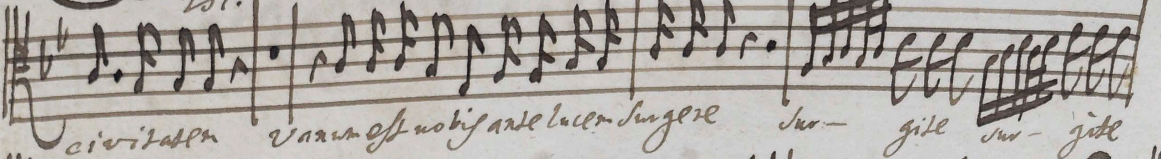 civitatem vanum est nobis ante lucem surgere sur- gite sur- gite